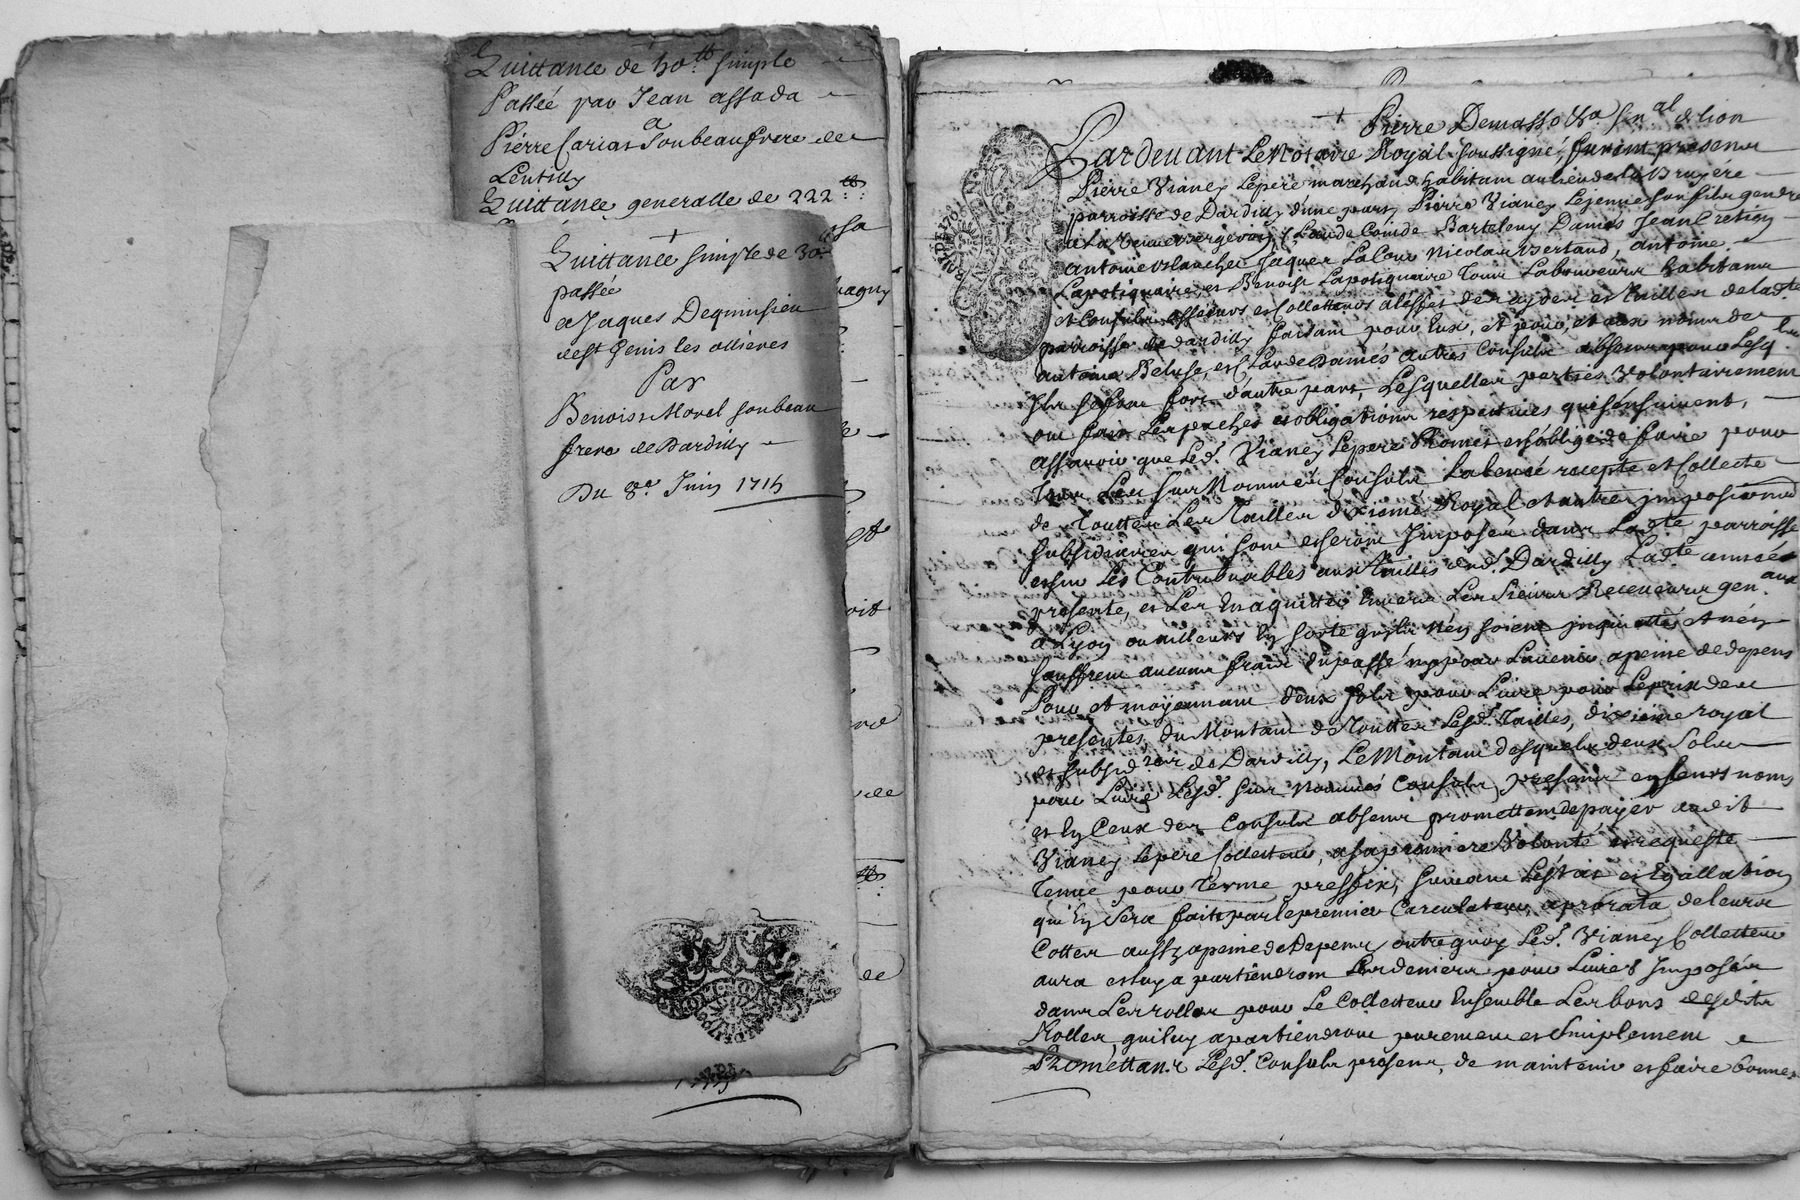 Quittance de 40ᵗᵗ simple
Passée par Jean assada
a
Pierre Cariat Son beaufrere de
Lentilly
Quittance generalle de 222ᵗᵗ
Quittance simple de 30ᵗᵗ
passée
a Jaques Dequinsieu
de st Genis les ollieres
Par
Benoist Morel son beau
frere de Dardilly
Du 8e Juin 1714
Par devant Le Notaire Royal soussigné, furent presens
Pierre Vianey Lepere marchand habitant au lieu de la Bruyere
parroisse de Dardilly d'une part, Pierre Vianey Lejeune son fils gendre
Claude Comde Bartelemy Damés Jean Cretign
antoine Blanchet Jaques Lacour Nicolas Bertaud, antoine
Lapotiquaire, et Benoist Lapotiquaire Tous Laboureurs habitans
et Consuls asseeurs et Collecteurs
parroisse de dardilly faisant pour Eux, et pour, et aux noms de
antoine Beluse, et Claude Damés autres Consuls absens pour Lesq.ls
Ils se font fort d'autre part, Lesquelles parties Volontairement
ont fait Les paches et obligations respectives qui sensuivent,
assavoir que Led. Vianey Lepere Promet et s'oblige de faire pour
Tous Les sus Nommés Consuls La levée recepte et Collecte
de Touttes Les Tailles dixieme Royal et autres impositions
subsidiaires qui sont et seront Imposés dans Lad.te parroisse
et sur Les Contribuables aux Tailles dud. Dardilly Lad.te année
presente, et Les En aquitter Envers Les Sieurs Receveurs gen.aux
a Lyon ou ailleurs En sorte qu'ils N'en soient inquiettés et n'en
souffrent aucuns frais du passé ny pour Lavenir a peine de depens
Pour et moyennant deux sols pour Livre pour Le prix des
presentes du Montant de Touttes Lesd. Tailles, dixieme royal
et subsid.res de Dardilly, Le Montant desquels deux Sols
pour Livre Lesd. sus Nommés Consuls presens en leurs noms
et En Ceux des Consuls absens promettent de payer audit
Vianey Lepere Collecteur, a sa premiere Volonté et requeste
Tenue pour Terme prefix, suivant L'estat et Egallation
qu'En sera fait par le premier Carculateur, a prorata de leurs
Cottes aussy a peine de Depens, outre quoy Led. Vianey Collecteur
aura et luy apartiendront Les deniers pour Livres Imposés
dans Les rolles pour Le Collecteur Ensemble Les bons desdits
Rolles, qui luy apartiendront purement et simplement
Promettant Lesd. Consuls presens, de maintenir et faire bonnes